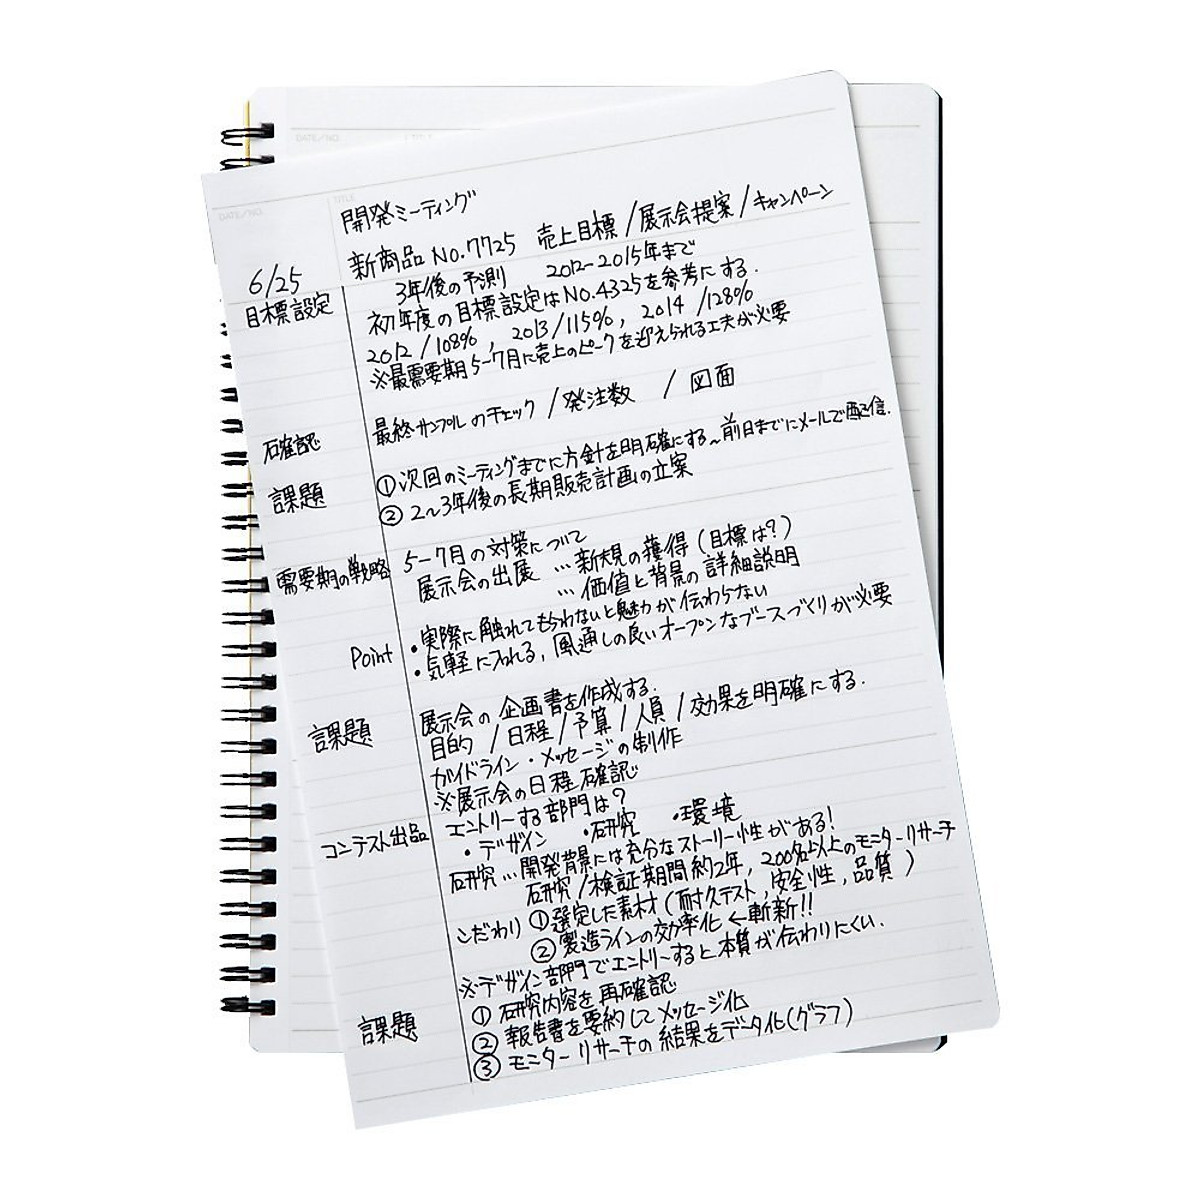 DATE/NO.
TITLE
DATE/NO.
TITLE
開発ミーティング
6/25 新商品 No.7725 売上目標/展示会提案/キャンペーン
目標設定 3年後の予測 2012-2015年まで
初年度の目標設定はNo.4325を参考にする.
2012/108%, 2013/115%, 2014/128%
※最需要期5-7月に売上のピークを迎えられる工夫が必要
確認 最終サンプルのチェック/発注数 / 図面
課題 ①次回のミーティングまでに方針を明確にする~前日までにメールで配信.
② 2~3年後の長期販売計画の立案
需要期の戦略 5-7月の対策について
展示会の出展 …新規の獲得(目標は?)
…価値と背景の詳細説明
Point ・実際に触れてもらわないと魅力が伝わらない
・気軽に入れる, 風通しの良いオープンなブースづくりが必要
課題 展示会の企画書を作成する.
目的/日程/予算/人員/効果を明確にする.
ガイドライン・メッセージの制作
※展示会の日程確認
コンテスト出品 エントリーする部門は?
・デザイン ・研究 ・環境
研究…開発背景には充分なストーリー性がある!
研究/検証期間約2年, 200名以上のモニターリサーチ
こだわり ①選定した素材(耐久テスト, 安全性, 品質)
②製造ラインの効率化←斬新!!
※デザイン部門でエントリーすると本質が伝わりにくい.
課題 ① 研究内容を再確認
② 報告書を要約してメッセージ化
③ モニターリサーチの結果をデータ化(グラフ)